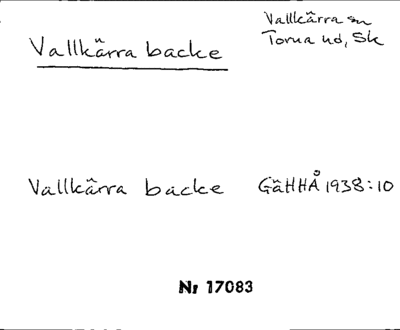 Vallkärra backe
Vallkärra sn
Torna hd, Sk
Vallkärra backe GäHHÅ 1938:10
Nr 17083